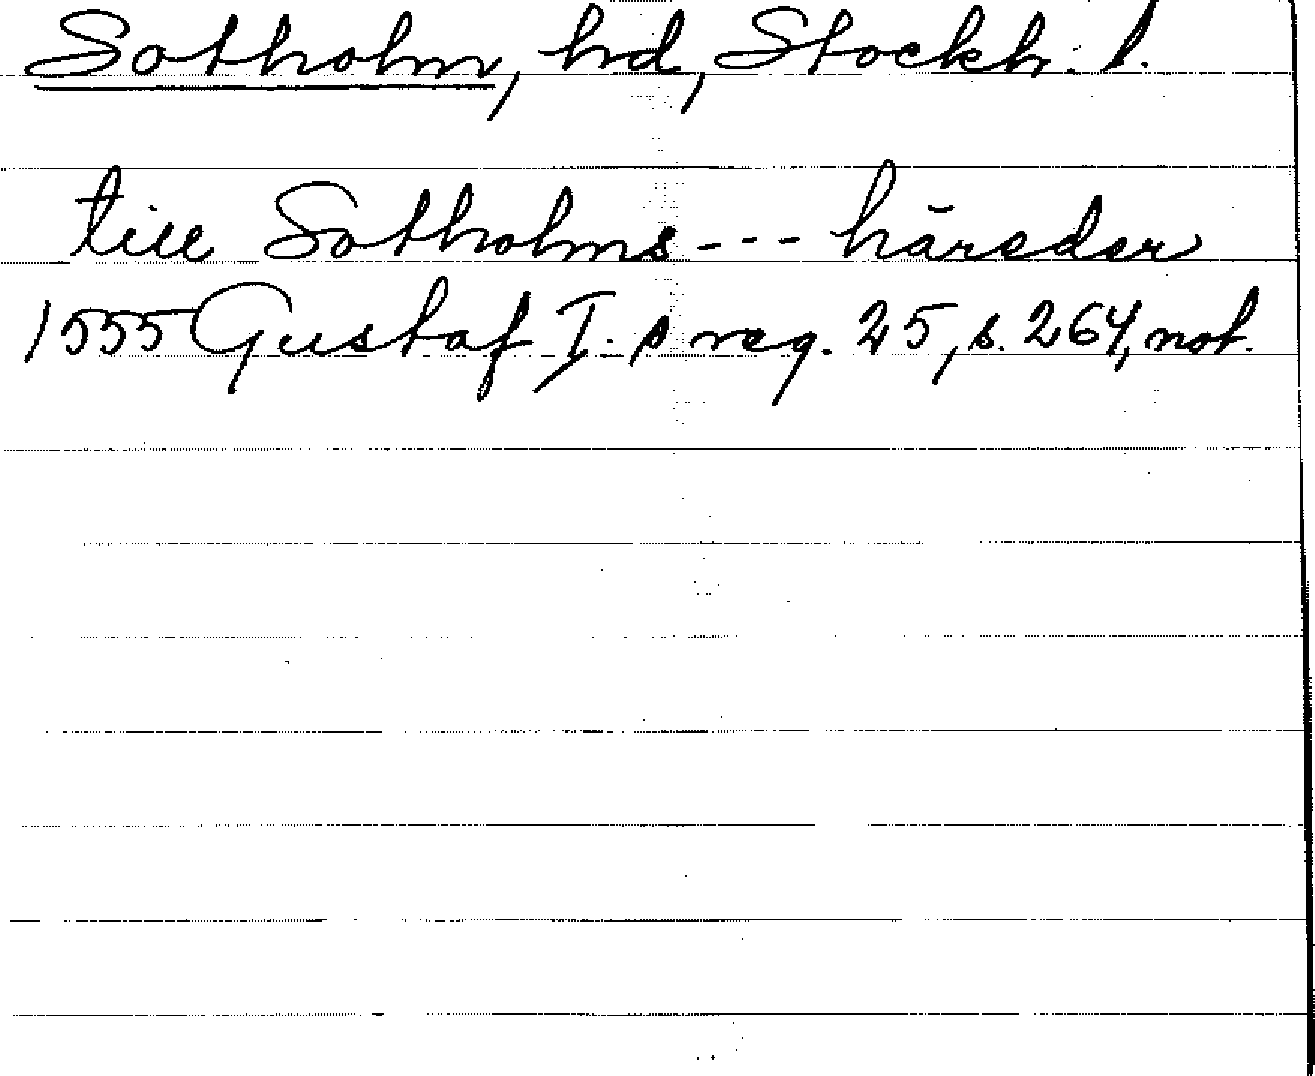 Sotholm, hd, Stockh. l.
till Sotholms --- häreder
1555 Gustaf I.s reg. 25, s. 264, not.